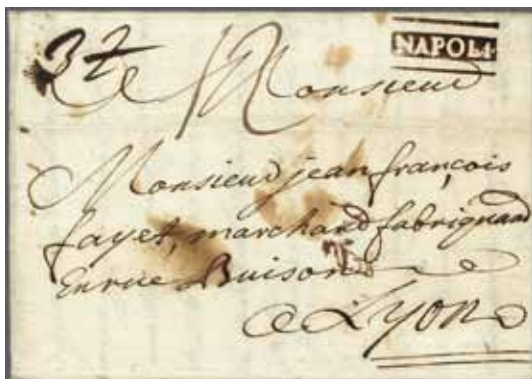 NAPOLI
Monsieur
Monsieur jean françois
fayet, marchand fabriquand
En rue Buison
a Lyon